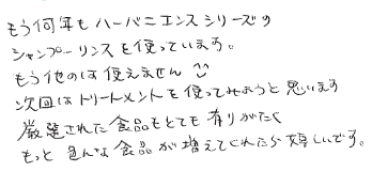 もう何年もハーバニエンスシリーズの
シャンプーリンスを使っています。
もう他のは使えません
次回はトリートメントを使ってみようと思います
厳選された食品もとても有りがたく
もっと色んな食品が増えてくれたら嬉しいです。